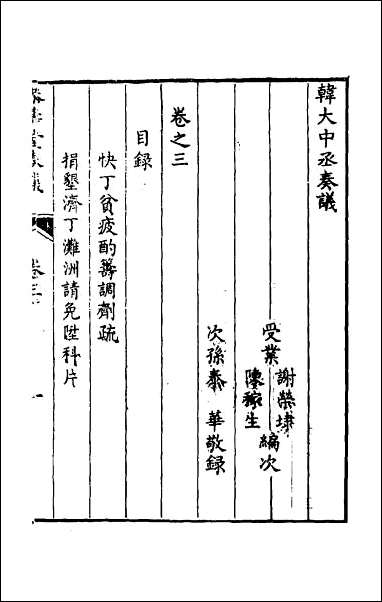 韓大中丞奏議
受業
謝榮埭
陳稼生
編次
次孫泰 華敬録
卷之三
目録
快丁貧疲酌籌調劑疏
捐墾濟丁灘洲請免陞科片
卷三
一